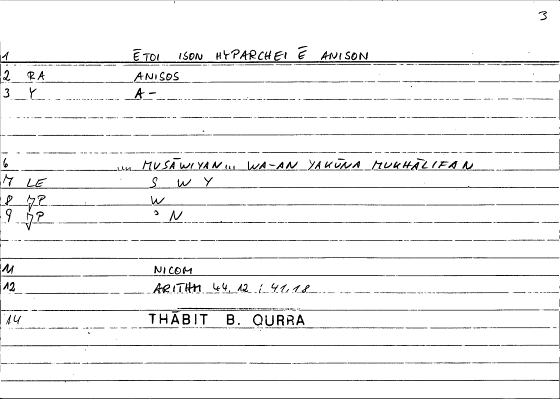 3
1 ĒTOI ISON HYPARCHEI Ē ANISON
2 RA ANISOS
3 Y A-
6 ... MUSĀWIYAN... WA-AN YAKŪNA MUKHĀLIFAN
7 LE S W Y
8 JP W
9 JP ʾN
11 NICOM
12 ARITHM 44,12 ; 41,18
14 THĀBIT B. QURRA